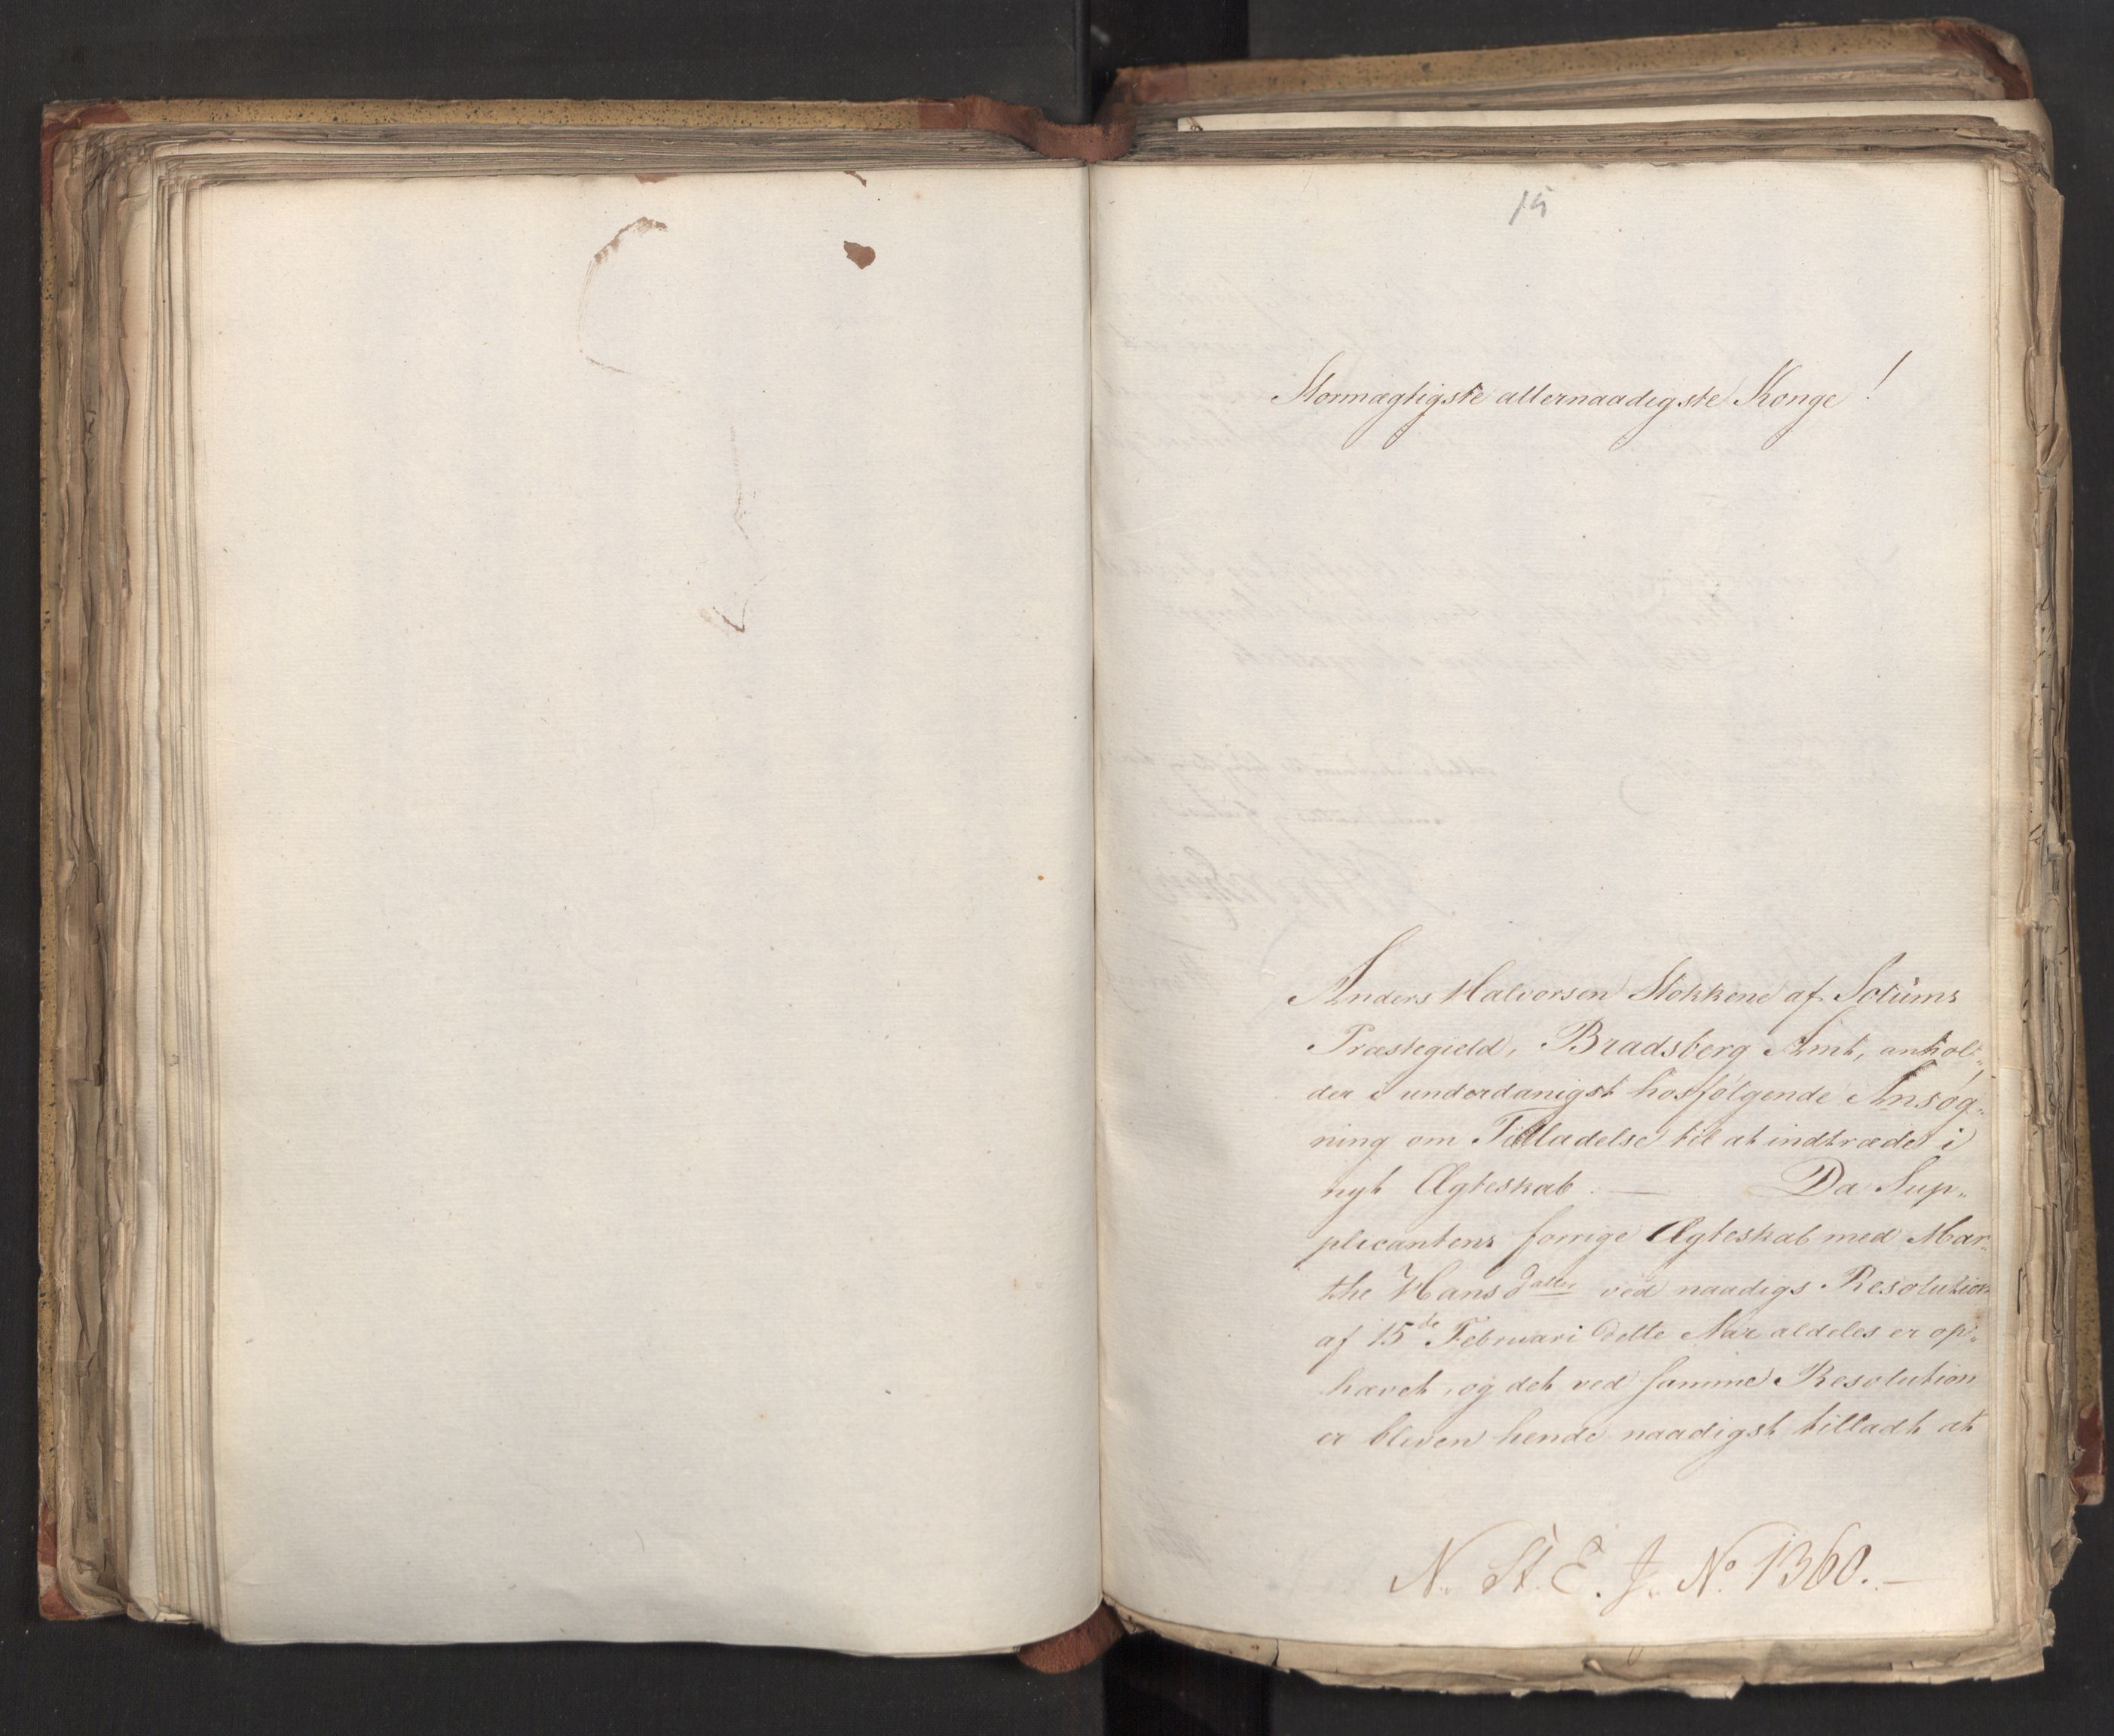 15
Stormægtigste allernaadigste Konge!
Anders Halvorsen Stokkene af Solüms
Præstegield, Bradsberg Amt, anhol„
der i underdanigst hosfølgende Ansøg„
ning om Tilladelse til at indtræde i
nyt Ægteskab. — Da Sup„
plicantens forrige Ægteskab med Mar„
the Hansdatter ved naadigs Resolution
af 15de Februari dette Aar aldeles er op„
hævet, og det ved samme Resolution
er bleven hende naadigst tilladt at
N. St. E. J. No. 1360. —